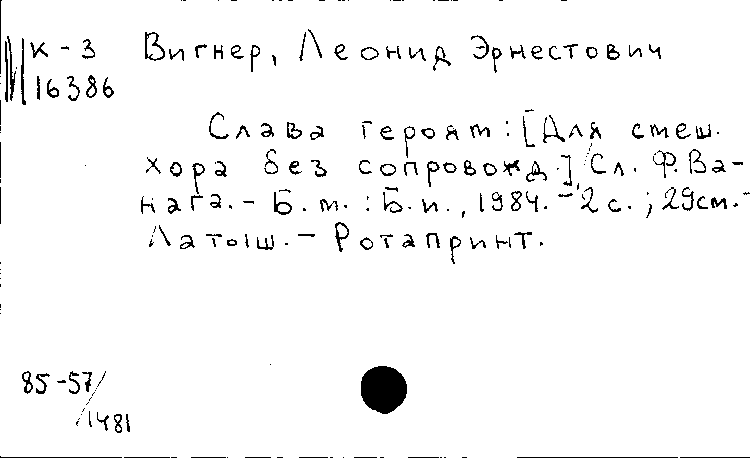 К-3 Вигнер, Леонид Эрнестович
16386
Слава героям: [Для смеш.
хора без сопровожд.] / Сл. Ф. Ва-
нага. - Б. м. : Б. и., 1984. - 2 с. ; 29см. -
Латыш. - Ротапринт.
85-57/
1481